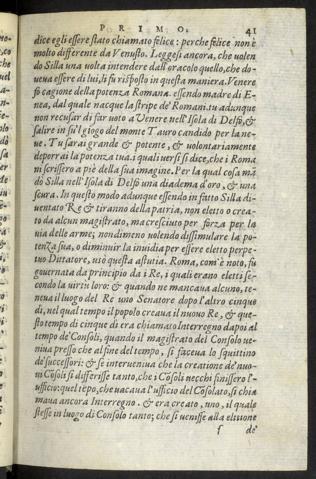 PRIMO. 41
dice egli essere stato chiamato felice: perche felice non è
molto differente da Venusto. Leggesi ancora, che uolen
do Silla una uolta intendere dall'oracolo quello, che do-
ueua essere di lui, li fu risposto in questa maniera. Venere
fo cagione della potenza Romana. essendo madre di E-
nea, dal quale nacque la stirpe de' Romani. tu adunque
non recusar di far uoto a Venere nell'Isola di Delfo, &
salire in su'l giogo del monte Tauro candido per la ne-
ue. Tu sarai grande & potente, & uolontariamente
deporrai la potenza tua. i quali uersi si dice, che i Roma
ni scrissero a piè della sua imagine. Per la qual cosa mā
dò Silla nell'Isola di Delfo una diadema d'oro, & una
scura. In questo modo adunque essendo in fatto Silla di-
uentato Re & tiranno della patria, non eletto o crea-
to da alcun magistrato, ma cresciuto per forza per la
uia delle arme; nondimeno uolendo dissimulare la po-
tenza sua, o diminuir la inuidia per essere eletto perpe-
tuo Dittatore, usò questa astutia. Roma, com'è noto, fu
gouernata da principio da i Re, i quali erano eletti se-
condo la uirtù loro: & quando ne mancaua alcuno, te-
neua il luogo del Re uno Senatore dopo l'altro cinque
dì, nel qual tempo il popolo creaua il nuouo Re, & que-
sto tempo di cinque dì era chiamato Interregno dapoi al
tempo de' Consoli, quando il magistrato del Consolo ue-
niua presso che al fine del tempo, si faceua lo squittino
de' successori: & se interueniua che la creatione de' nuo-
ui Cōsoli si differisse tanto, che i Cōsoli uecchi finissero l'-
ufficio: quel tēpo, che uacaua l'ufficio del Cōsolato, si chia
maua ancora Interregno. & era creato, uno, il quale
stesse in luogo di Consolo tanto; che si uenisse alla elttione
f de'